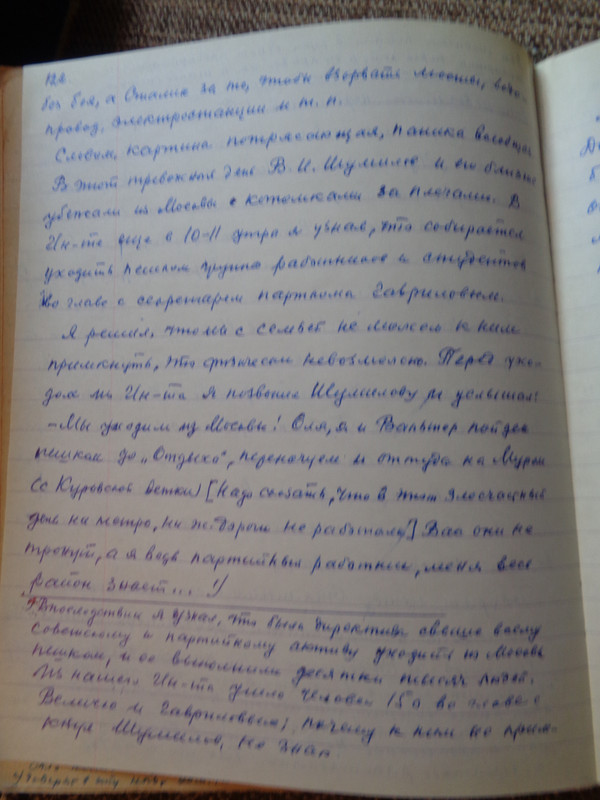 126
без боя, а Сталин за то, чтобы взорвать мосты, водо-
провод, электростанции и т. п.
Словом, картина потрясающая, паника всеобщая
В этот тревожный день В. И. Шумилов и его близкие
убежали из Москвы с котомками за плечами. В
Ин-те еще в 10-11 утра я узнал, что собирается
уходить пешком группа работников и студентов
во главе с секретарем парткома Гавриловым.
Я решил, что мы с семьей не можем к ним
примкнуть, это физически невозможно. Перед ухо-
дом из Ин-та я позвонил Шумилову и услышал:
- Мы уходим из Москвы! Оля, я и Вальтер пойдем
пешком до „Отдыха", переночуем и оттуда на Муром
(с Куровской ветки) [Надо сказать, что в этот злосчастный
день ни метро, ни ж. дороги не работали] Вас они не
тронут, а я ведь партийный работник, меня весь
район знает... !)
Впоследствии я узнал, что была директива свыше всему
советскому и партийному активу уходить из Москвы
пешком, и ее выполнили десятки тысяч людей.
Из нашего Ин-та ушло человек 150 во главе с
и Гавриловым; почему к ним не прим-
кнул Шумилов, не знаю.